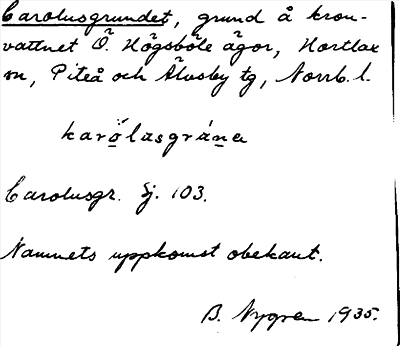 Carolusgrundet, grund å kron-
vattnet Ö. Högsböle ägor, Hortlax
sn, Piteå och Älvsby tg, Norrb. l.
karo̱lasgrá̱na
Carolusgr. Sj. 103.
Namnets uppkomst obekant.
B. Nygren 1935.